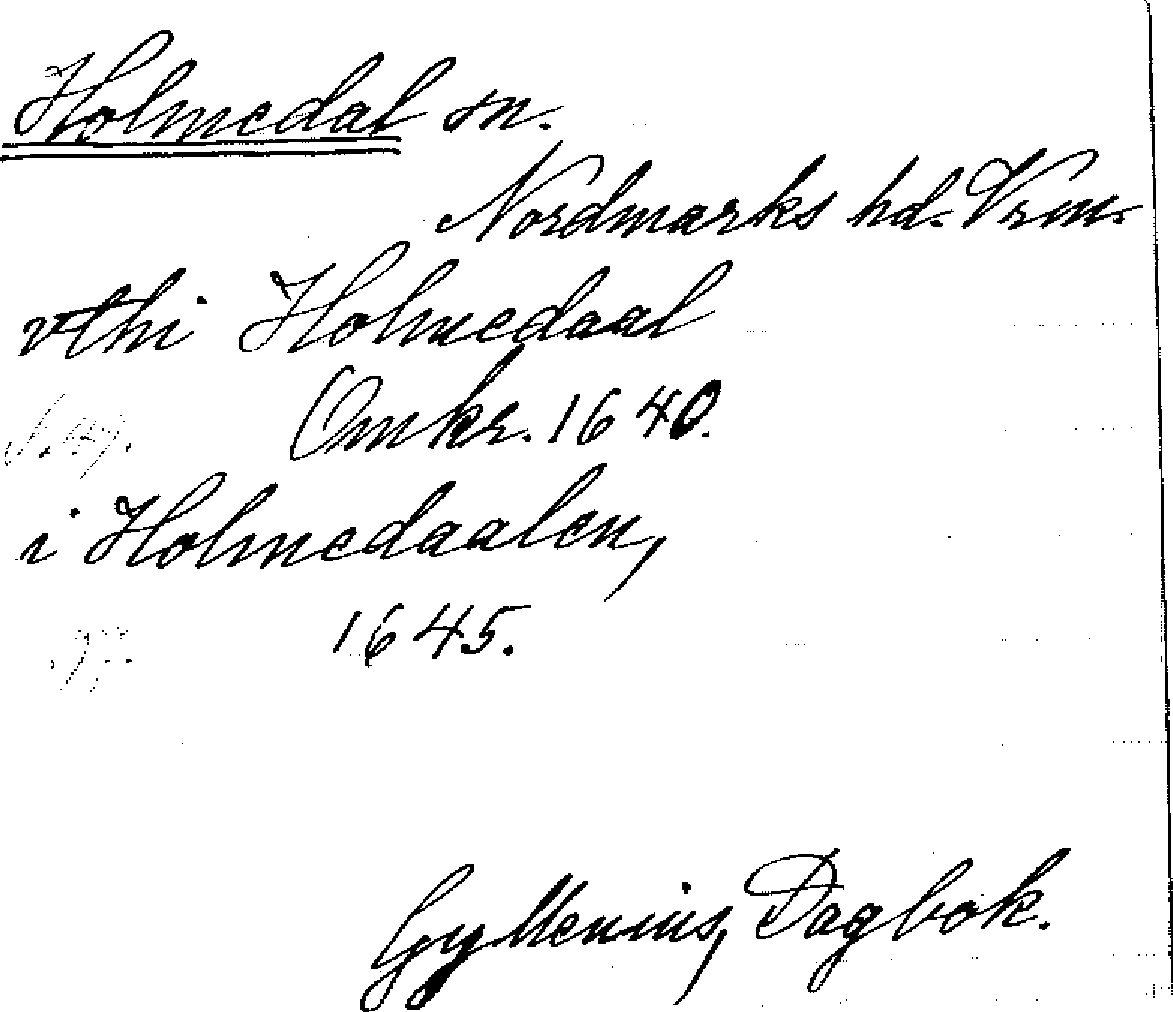 Holmedal sn.
Nordmarks hd. Vrm.
vthi Holmedaal
Omkr. 1640.
i Holmedaalen,
1645.
Gyllenius, Dagbok.